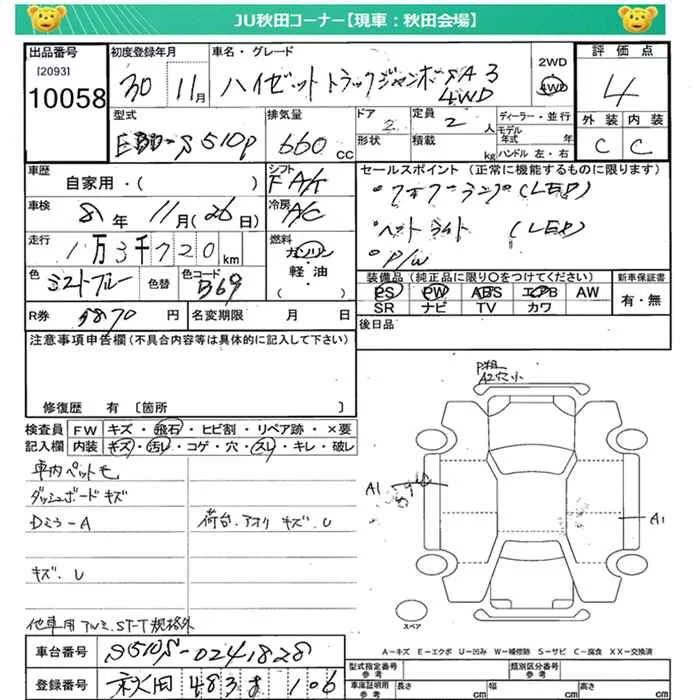 JU秋田コーナー【現車：秋田会場】
出品番号
[2093]
10058
初度登録年月
30 11月
車名・グレード
ハイゼットトラックジャンボSA3
4WD
2WD
4WD
評価点
4
外装 内装
C C
型式
EBD-S510P
排気量
660 CC
ドア
2
形状
定員
2 人
積載 kg
ディーラー・並行
モデル年式 年
ハンドル 左・右
車歴
自家用・( )
シフト
F A/t
セールスポイント（正常に機能するものに限ります）
・フォグランプ(LED)
・ヘットライト (LED)
・P/W
車検
8年 11月(26日)
冷房
A/C
走行
1万3千720km
燃料
ガソリン
軽油
( )
色
ミストブルー
色替
色コード
B69
装備品（純正品に限り〇をつけてください）
PS PW ABS エアB AW
SR ナビ TV カワ
新車保証書
有・無
R券 5870円
名変期限 月 日
後日品
注意事項申告欄(不具合内容等は具体的に記入して下さい)
修復歴 有〔箇所 〕
検査員記入欄
FW キズ・飛石・ヒビ割・リペア跡・×要
内装 キズ・汚レ・コゲ・穴・スレ・キレ・破レ
車内ペット毛
ダッシュボードキズ
Dミラ-A
荷台.アオリ キズ.U
キズ.U
他車用アルミ.ST-T規格外
P粗
A2穴小
A1
A1
スペア
A－キズ E－エクボ U－凹み W－補修跡 S－サビ C－腐食 XX－交換済
車台番号 S510P-0241828
登録番号 秋田 483 106
型式指定番号
参考
類別区分番号
参考
車庫証明用
参考
長さ cm
幅 cm
高さ cm